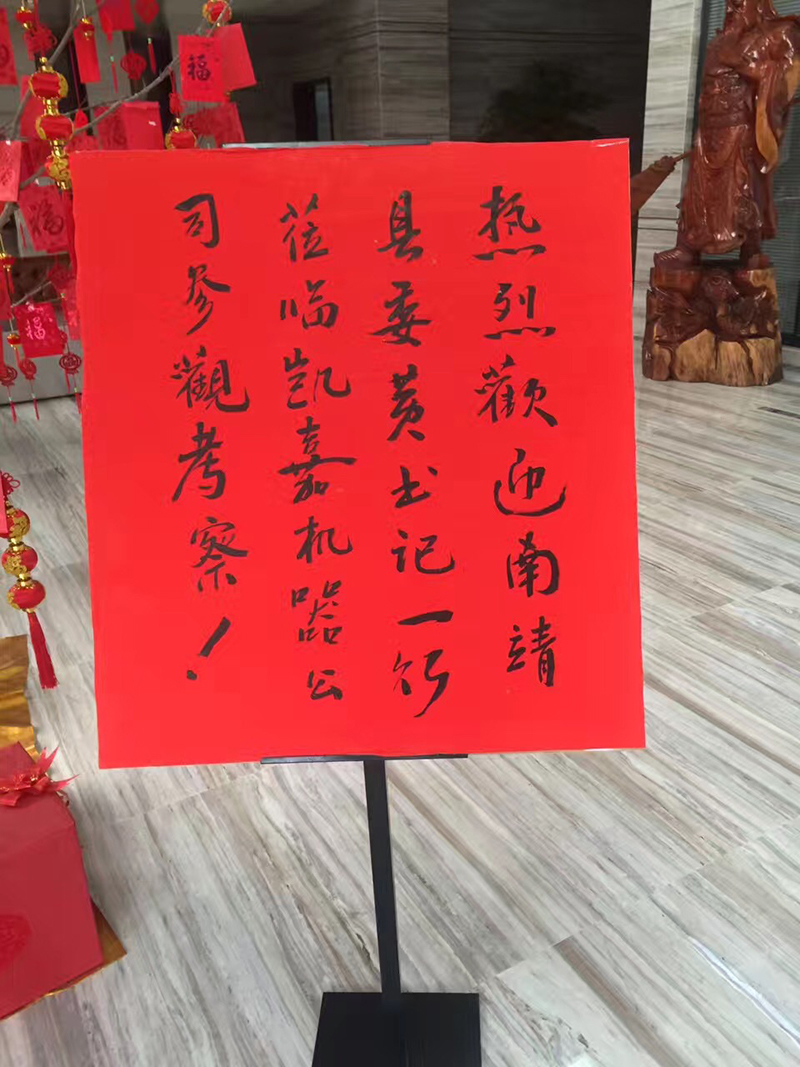 热烈歡迎南靖
县委黄书记一行
莅临凯嘉机器公
司参觀考察！
福
福
福